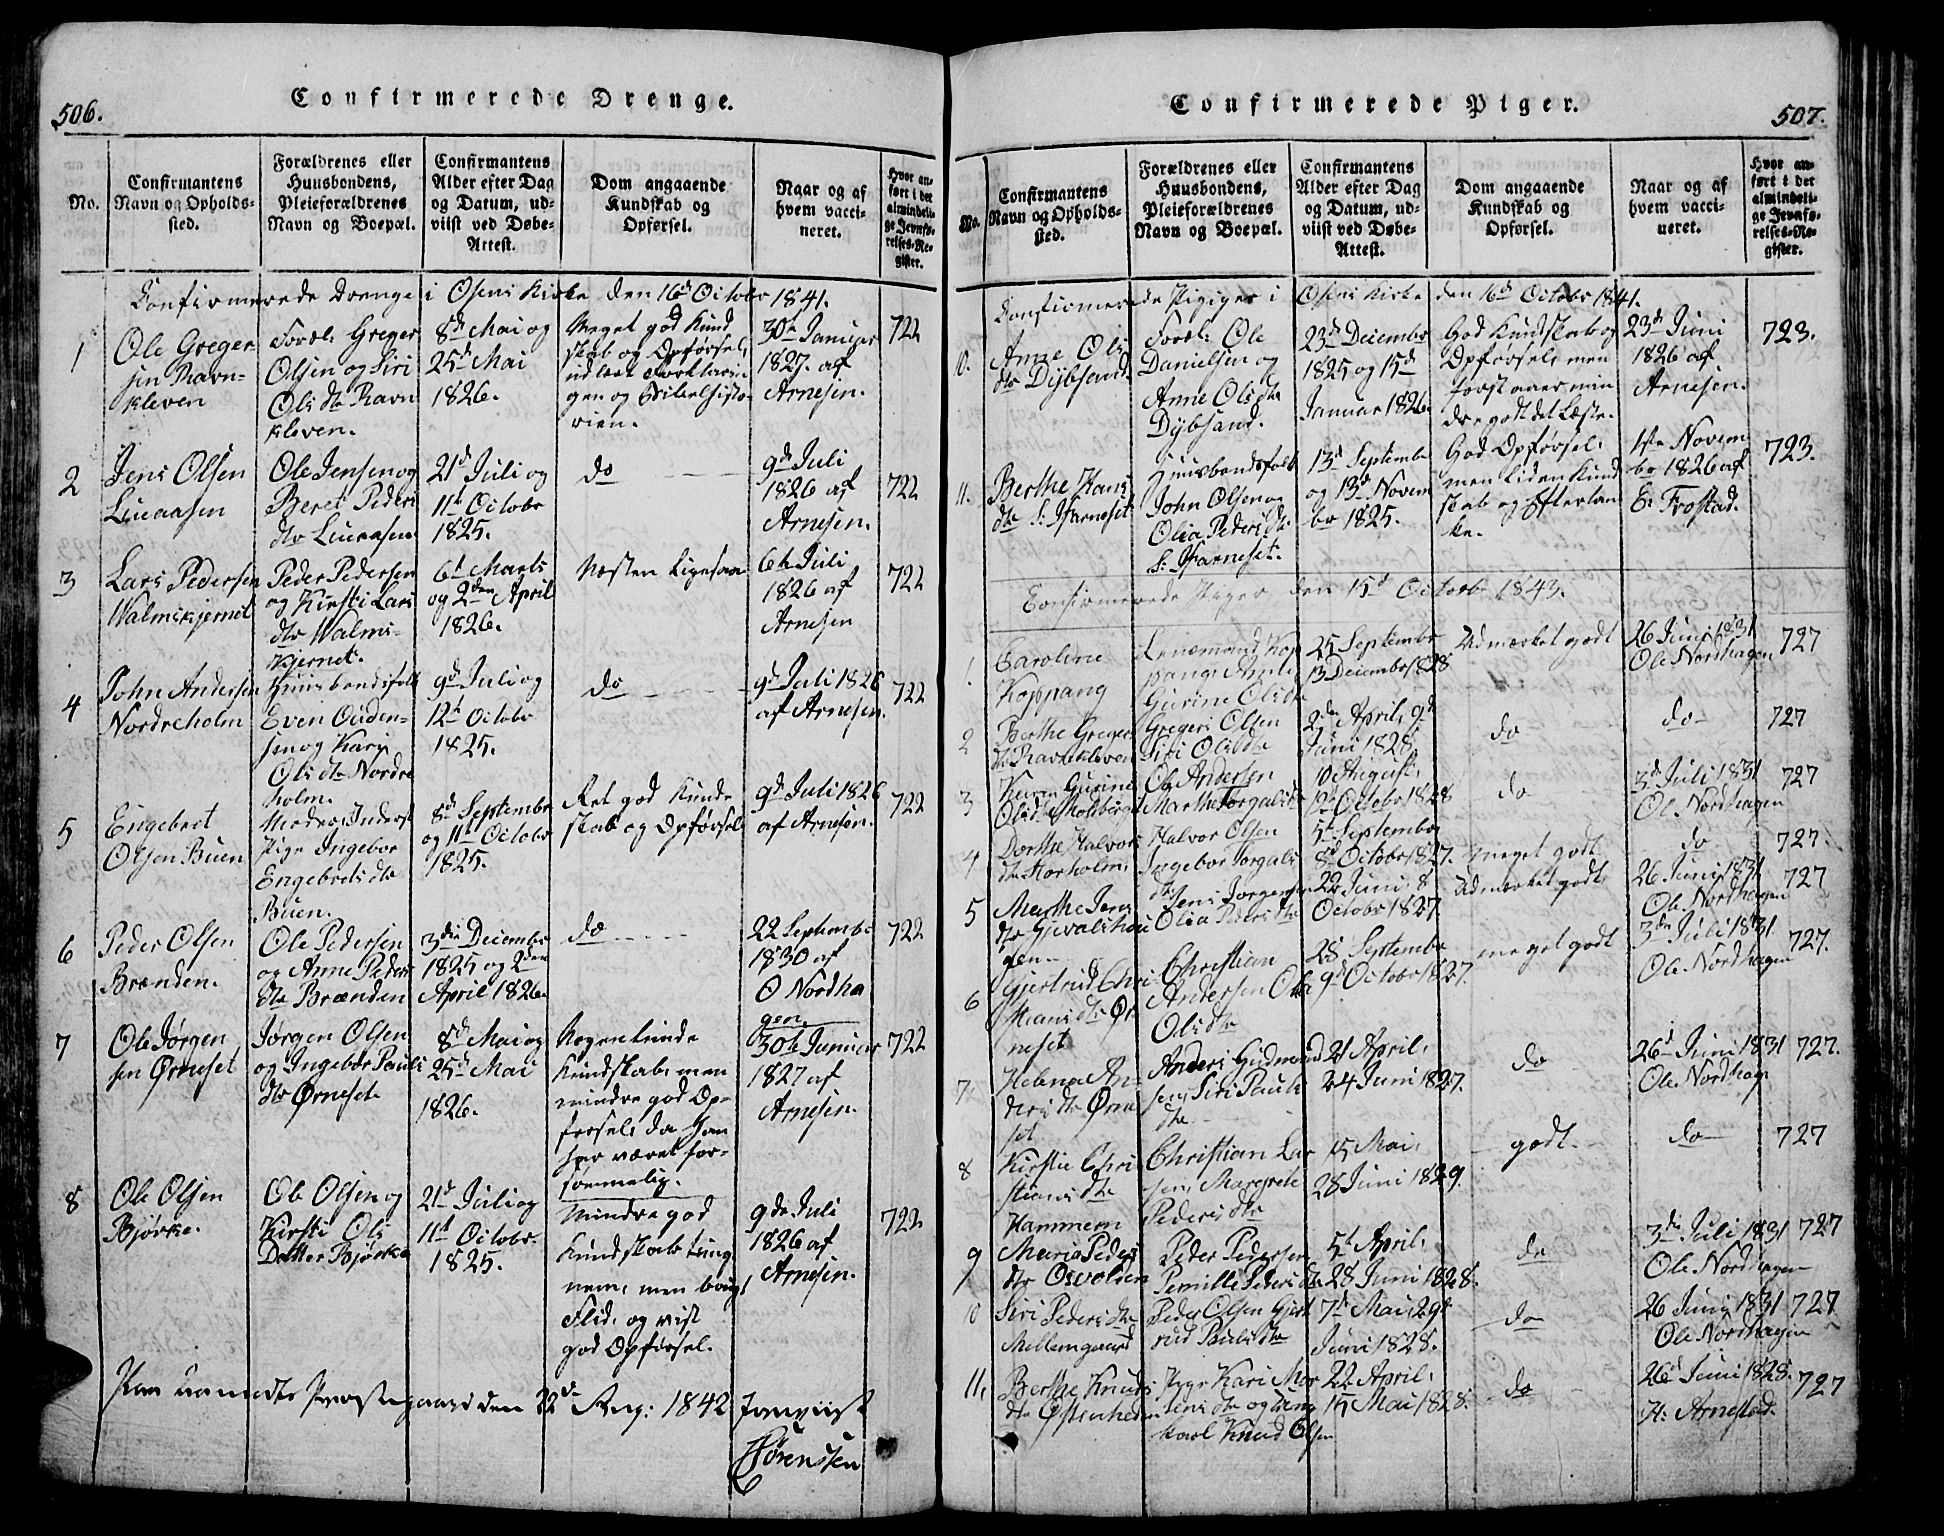 506.
Confirmerede Drenge.
No.
Confirmantens
Navn og Opholds-
sted.
Forældrenes eller
Huusbondens,
Pleieforældrenes
Navn og Boepæl.
Confirmantens
Alder efter Dag
og Datum, ud-
viist ved Døbe-
Attest.
Dom angaaende
Kundskab og
Opførsel.
Naar og af
hvem vacci-
neret.
Hvor an-
ført i det
almindeli-
ge Jevnfø-
relses-Re-
gister.
Confirmerede Drenge i Osens Kirke den 16d Octobr 1841.
1
Ole Greger
sen Ravn-
kleven
Foræl: Greger
Olsen og Siri
Olsdtr Ravn
kleven.
8d Mai og
25d Mai
1826.
Meget god Kund
skab og Opførsel,
udlært Forklarin
gen og Bibelhisto-
rien.
30te Januar
1827. af
Arnesen.
722
2
Jens Olsen
Liuaasen
Ole Jensen og
Beret Peders
dtr Liuaasen
21d Juli og
11t Octobr
1825.
do
9d Juli
1826 af
Arnesen.
722
3
Lars Pedersen
Walmskjernet
Peder Pedersen
og Kirsti Lars
dtr Walms-
kjernet.
6t Marts
og 2den April
1826.
Næsten ligesaa
6t Juli
1826 af
Arnesen
722
4
John Andersen
Nordreholm
Huusbondsfolk
Even Ouden-
sen og Kari
Olsdtr Nordre
holm.
9d Juli og
12t Octobr
1825.
do
9d Juli 1826
af Arnesen.
722
5
Engebret
Olsen Buen
Moder: Inderst
Pige Ingebor
Engebretsdtr
Buen.
8d Septembr
og 11t Octobr
1825.
Ret god Kund
skab og Opførsel
9d Juli 1826
af Arnesen.
722
6
Peder Olsen
Brænden.
Ole Pedersen
og Anne Peders
dtr Brænden
3die Decembr
1825 og 2den
April 1826.
do
22 Septembr
1830 af
O Nordha
gen.
722
7
Ole Jørgen
sen Ørneset
Jørgen Olsen
og Ingebor Pauls
dtr Ørneset
8d Mai og
25d Mai
1826.
Nogenlunde
Kundskab, men
mindre god Op-
førsel, da han
har været for-
sømmelig.
30te Januar
1827 af
Arnesen.
722
8
Ole Olsen
Bjørke.
Ole Olsen og
Kirsti Ols
Datter Bjørke
21d Juli og
11t Octobr
1825.
Mindre god
Kundskab, tung
nem, men brugt
Flid, og vist
god Opførsel.
9de Juli
1826 af
Arnesen.
722
den 22d Aug: 1842
Sørenssen
Confirmerede Piger.
507.
No.
Confirmantens
Navn og Opholds-
sted.
Forældrenes eller
Huusbondens,
Pleieforældrenes
Navn og Boepæl.
Confirmantens
Alder efter Dag
og Datum, ud-
viist ved Døbe-
Attest.
Dom angaaende
Kundskab og
Opførsel.
Naar og af
hvem vacci-
neret.
Hvor an-
ført i det
almindeli-
ge Jevnfø-
relses-Re-
gister.
Confirmerede Piger i Osens Kirke den 16d Octobr 1841.
10.
Anne Ols
dtr Dybsand.
Foræl: Ole
Danielsen og
Anne Olsdtr
Dybsand.
23d Decembr
1825 og 15d
Januar 1826.
God Kundskab og
Opførsel, men
forstaaer min
dre godt det Læste.
23d Juni
1826 af
Arnesen.
723.
11.
Berthe Hans
dtr
Huusbondsfolk
John Olsen og
Olia Pedersdtr
13d Septembr
og 13d Novem
br 1825.
God Opførsel,
men liden Kund
skab og Eftertan
ke.
1ste Novem
br 1826 af
E: Frostad.
723.
Confirmerede Piger den 15d Octobr 1843.
1
Caroline
Koppang
Kop
pang,
Gurine Olsdtr
25 Septembr
13 Decembr 1828
Udmærket godt
26 Juni 1831
Ole Nordhagen
727
2
Berthe Gregers
dtr Ravnkleven
Gregers Olsen
Siri Olsdtr
2den April, 9d
Juni 1828
do
do
727
3
Karen Gurine
Olsdtr
Ole Andersen
Marthe Torgalsdtr
10 August,
12t Octobr 1828
do
3de Juli 1831
Ole Nordhagen
727
4
Dorthe Halvors
dtr Storholm
Halvor Olsen
Ingebor Torgals
dtr
5t Septembr
8d Octobr 1827.
meget godt
do
727.
5
Marthe Jens
dtr
gen
Jens Jorgensen
Olia Pedersdtr
22 Juni, 8
Octobr 1827
Udmærket godt
26 Juni 1831
Ole Nordhagen
727
6
Gjertrud Chri
stiansdtr Ør
neset
Christian
Andersen
Olsdtr
28 Septembr
9d Octobr 1827.
meget godt
3de Juli 1831
Ole Nordhagen
727.
7.
Helena An
dersdtr Ørne
set
Anders Gudmund
sen, Siri Pauls
dtr
21 April,
24 Juni 1827.
do
26d Juni 1831
Ole Nordhag
727.
8
Kirstie Chri
stiansdtr
Hammern
Christian Lar
sen, Margrete
Pedersdtr
15 Mai,
28 Juni 1829.
godt
do
727
9
Maria Peders
dtr Osvolden
Peder Pedersen
Pernille Pedersdtr
5t April,
28 Juni 1828.
do
3de Juli 1831
Ole Nordhagen
727
10
Siri Pedersdtr
Mellemgaard
Peder Olsen Gjert
rud Paulsdtr
7d Mai, 29d
Juni 1828.
do
26 Juni 1831
Ole Nordhagen
727
11.
Berthe Knuds
dtr Østenheden
Pige Kari Mor
tensdtr og Ung
karl Knud Olsen
22 April,
15 Mai 1828.
do
26d Juni 1828.
H: Arnestad.
727